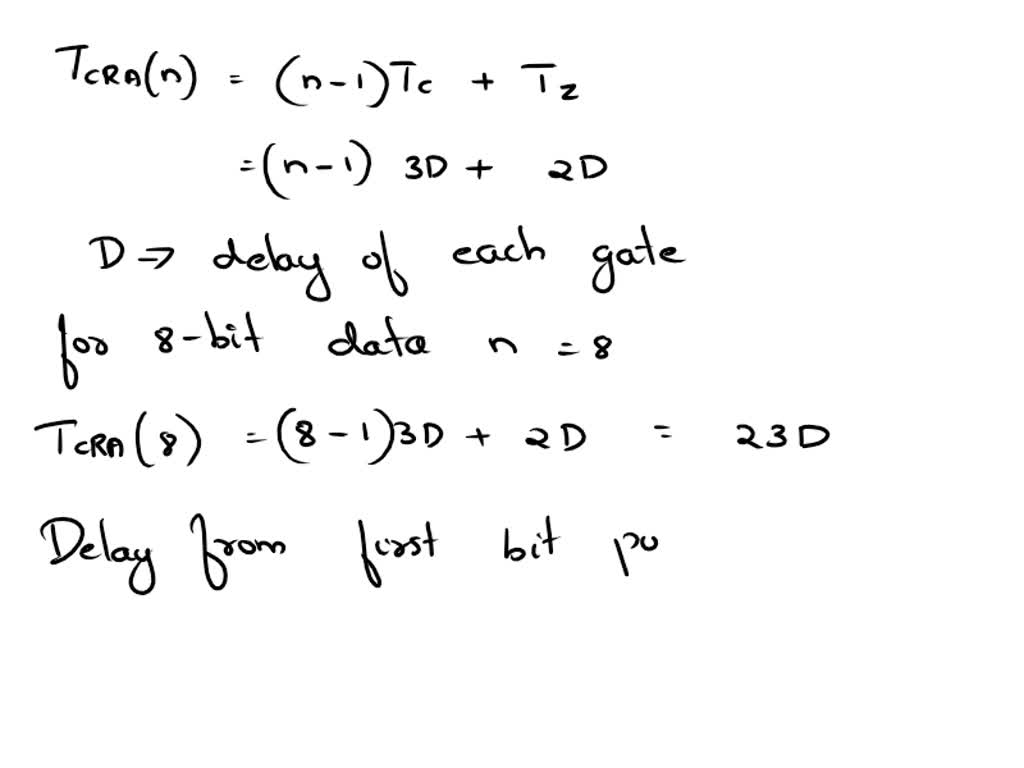 TCRA(n) = (n-1)Tc + Tz
=(n-1) 3D + 2D
D ⇒ delay of each gate
for 8-bit data n = 8
TCRA(8) = (8-1)3D + 2D = 23D
Delay from first bit po